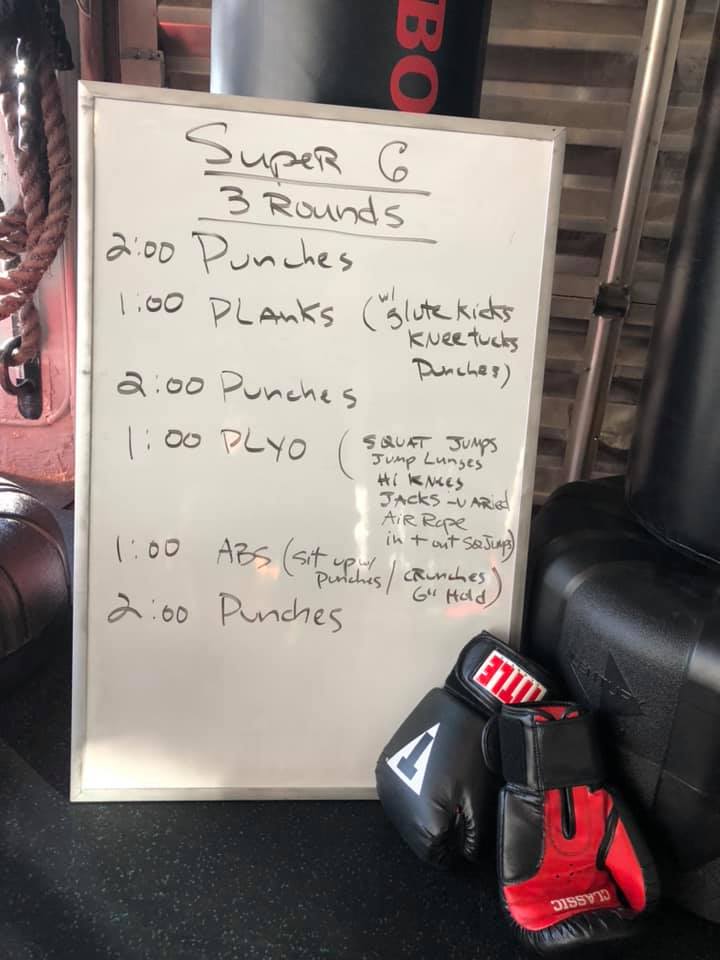 BO
Super 6
3 Rounds
2:00 Punches
1:00 PLANKS (w/ glute kicks
KNEE tucks
Punches)
2:00 Punches
1:00 PLYO (SQUAT JUMPS
Jump Lunges
Hi KNEES
JACKS - VARied
AiR Rope
in + out SQ Jumps)
1:00 ABS (sit up w/
punches / CRunches
6" Hold)
2:00 Punches
TITLE
T
CLASSIC